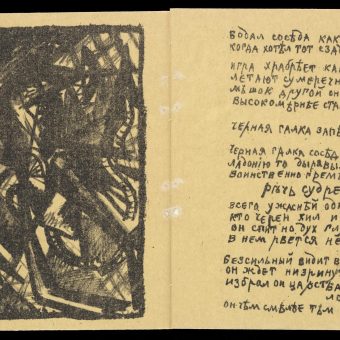 БОДАЛ СОСѢДА КАК
КОГДА ХОТѢЛ ТОТ СЗА
ИГРА ХРАБРѢЕТ КА
ЛЕТАЮТ СУМЕРЕЧН
МѢШОК ДРУГОЙ ОН
ВЫСОКОМѢРНѢЕ СТА
ЧЕРНАЯ ГАЛКА ЗАПѢ
ЧЕРНАЯ ГАЛКА СОСѢД
ЛАДОНІЮ ТО
ВОИНСТВЕННО ГРЕМ
РѢЧЬ СУДРЕ
ВСЕГО УЖАСНѢЙ ОД
КТО ЧЕРЕН ХИЛ И
ОН СПИТ НО ДУХ
В НЕМ РВЕТСЯ НЕ
БЕЗСИЛЬНЫЙ ВИДИТ В
ОН ЖДЕТ НИЗРИНУ
ИЗБРАЛ ОН ЦАРСТВА
ЛО
ОН ЧѢМ СМѢЛѢЕ ТѢМ